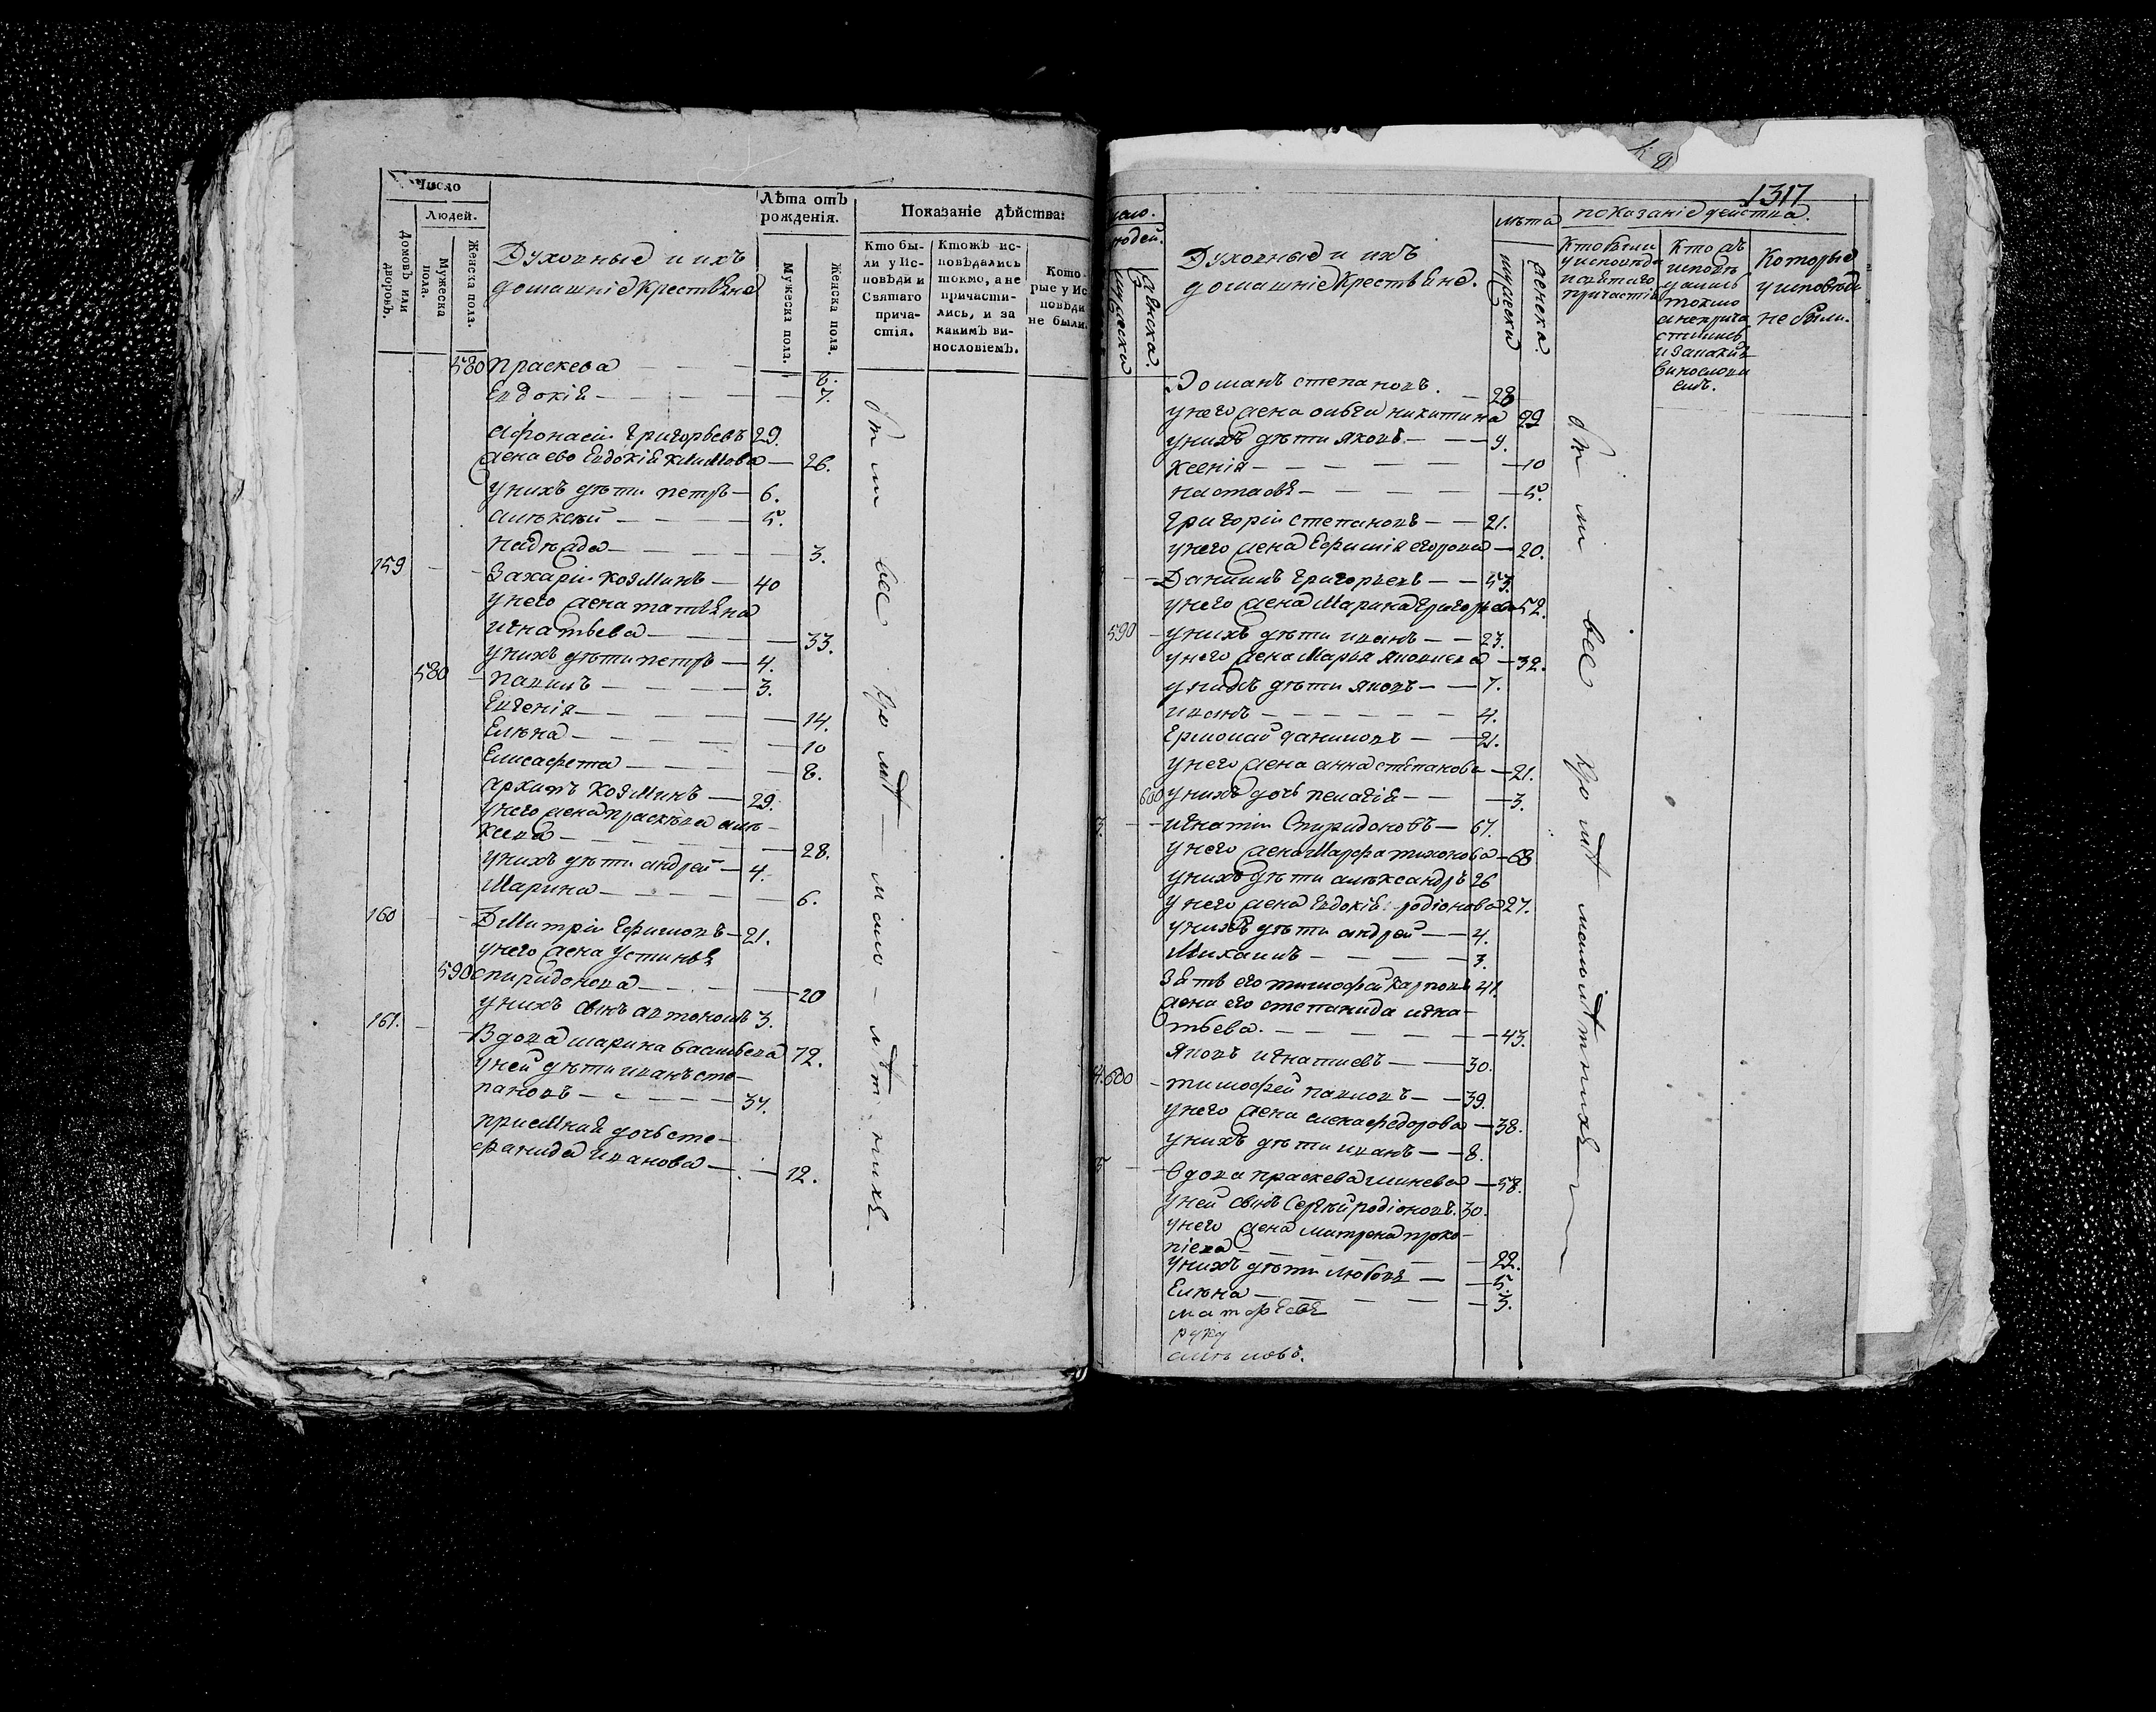 Число
Людей.
Домовъ или дворовъ.
Мужеска пола.
Женска пола.
Духовные и ихъ
домашніе крестьяне
Лѣта отъ
рожденія.
Мужеска пола.
Женска пола.
Показаніе дѣйства:
Кто бы-
ли у Ис-
повѣди и
Святаго
прича-
стія.
Ктожъ ис-
повѣдались
токмо, а не
причасти-
лись, и за
какимъ ви-
нословіемъ.
Кото-
рые у Ис
повѣди
не были.
580 праскева — 8.
Евдокія — 7.
афонасій григорьевъ 29.
жена ево Евдокія климова — 26.
у нихъ дѣти петръ — 6.
алѣксѣй — 5.
надѣжда — 3.
159 Захарій козминъ — 40
у него жена татьяна
игнатьева — 33.
у нихъ дѣти петръ — 4.
580 павилъ — 3.
Евгенія — 14.
Елѣна — 10
Елисафета — 8.
архипъ козминъ — 29.
у него жена праскѣва алѣ-
ксева — 28.
у нихъ дѣти андрей — 4.
Марина — 6.
160 Дмитрій Ефимовъ — 21.
у него жена устинья
590 спиридонова — 20
у нихъ сынъ автономъ 3.
161. Вдова марина васильева 72.
у ней дѣти иванъ сте-
пановъ — 37.
приемная дочь сте-
фанида иванова — 12.
были все
1317
людей.
мужеска
женска.
Духовные и ихъ
домашніе крестьяне.
лѣта
мужеска
женска.
показаніе действа.
Кто были
у исповѣди
и святаго
причастія
Кто жъ
исповѣ
дались
токмо
а неприча
стились
и за каким
винослови
емъ.
Которые
у исповѣди
не были.
Романъ степановъ. — 28
у него жена ольга никитина 29
у нихъ дѣти яковъ — 9.
Ксенія — 10
настасья — 5.
григорій степановъ — 21.
у него жена Ефимія егорова — 20.
Даниилъ григорьевъ — 53.
у него жена Марина григорьева 52.
590 у нихъ дѣти иванъ — 23.
у него жена Марья яковлева — 32.
у нихъ дѣти яковъ — 7.
иванъ — 4.
Ермолай даниловъ — 21.
у него жена анна степанова — 21.
600 у нихъ дочь пелагія — 3.
игнатій Спиридоновъ — 67.
у него жена Марфа тихонова — 68
у нихъ дѣти алѣксандръ 26
у него жена Евдокія родіонова 27.
у нихъ дѣти андрей — 4.
Михаилъ — 3.
Зять его тимофей карповъ 41.
жена его степанида игна-
тьева. — 43.
яковъ игнатиевъ — 30.
600 тимофей павловъ — 39.
у него жена елена федорова — 38.
у нихъ дѣти иванъ — 8.
вдова праскева минева — 58.
у ней сынъ Сергѣй родіоновъ. 30.
у него жена матрена проко-
піева — 22.
у нихъ дѣти любовь — 5.
Елѣна — 3.
руку
были все